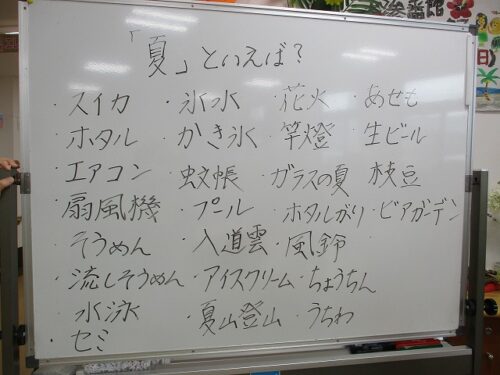 「夏」といえば?
・スイカ ・氷水 ・花火 ・あせも
・ホタル ・かき氷 ・竿燈 ・生ビール
・エアコン ・蚊帳 ・ガラスの夏 ・枝豆
・扇風機 ・プール ・ホタルがり ・ビアガーデン
・そうめん ・入道雲 ・風鈴 ・
・流しそうめん ・アイスクリーム ・ちょうちん
・水泳 ・夏山登山 ・うちわ
・セミ
番館
日)